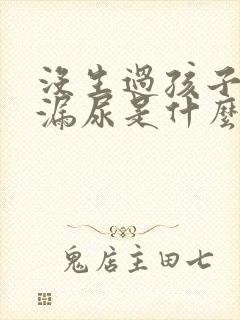 沒生過孩子
漏尿是什麼
鬼店主田七